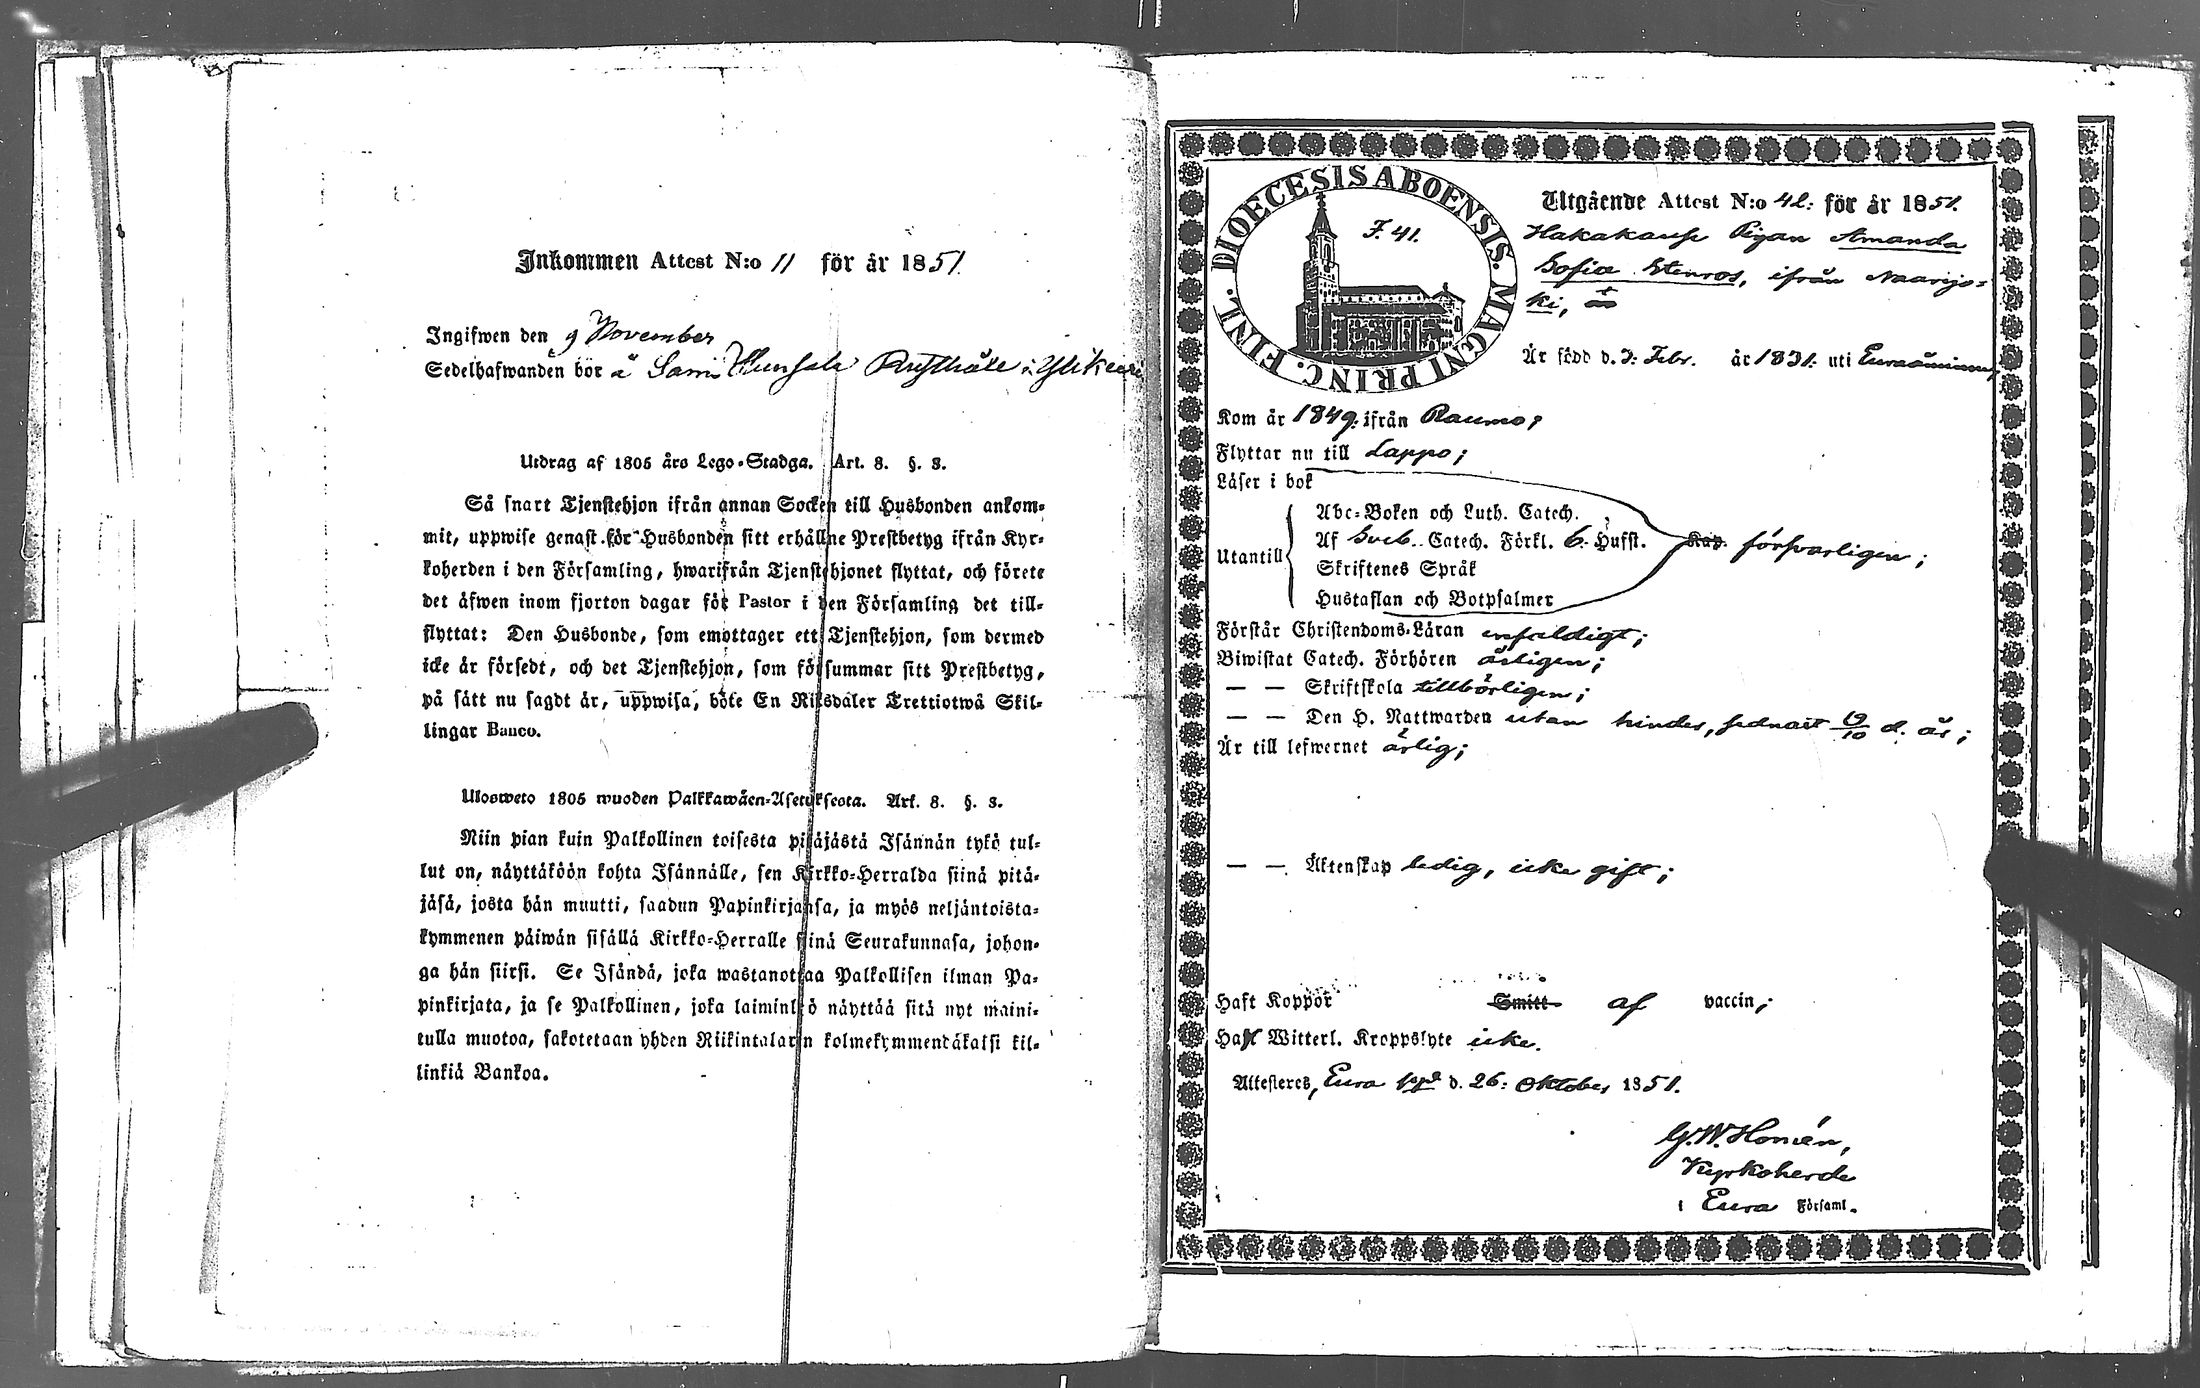 Inkommen Attest N:o 11 för år 1851
Ingifwen den 9 November
Sedelhafwanden bor å Sami Hunsala Rusthåll i Ylikeari
Utdrag af 1805 års Lego-Stadga. Art. 8. §. 3.
Så snart Tjenstehjon ifrån annan Socken till Husbonden ankom-
mit, uppwise genast för Husbonden sitt erhållne Prestbetyg ifrån Kyr-
koherden i den Församling, hwarifrån Tjenstehjonet flyttat, och förete
det äfwen inom fjorton dagar för Pastor i den Församling det till-
flyttat: Den Husbonde, som emottager ett Tjenstehjon, som dermed
icke är försedt, och det Tjenstehjon, som försummar sitt Prestbetyg,
på sätt nu sagdt är, uppwisa, böte En Riksdaler Trettiotwå Skil-
lingar Banco.
Ulosweto 1805 wuoden Palkkawäen-Asetuksesta. Art. 8. §. 3.
Niin pian kuin Palkollinen toisesta pitäjästä Isännän tykö tul-
lut on, näyttäköön kohta Isännälle, sen Kirkko-Herralda siinä pitä-
jäsä, josta hän muutti, saadun Papinkirjansa, ja myös neljäntoista-
kymmenen päiwän sisällä Kirkko-Herralle siinä Seurakunnasa, johon-
ga hän siirsi. Se Isändä, joka wastanottaa Palkollisen ilman Pa-
pinkirjata, ja se Palkollinen, joka laiminlyö näyttää sitä nyt maini-
tulla muotoa, sakotetaan yhden Riikintalarin kolmekymmendäkaksi kil-
linkiä Bankoa.
DIOECESIS ABOENSIS. MAGNI PRINC. FINL.
F. 41.
Utgående Attest N:o 42: för år 1851.
Pigan Amanda
Sofia Stenros, ifrån Naarijo-
ki,
Är född d. 3: Febr. år 1831: uti Euraåminne,
Kom år 1849: ifrån Raumo;
Flyttar nu till Lappo;
Läser i bok
Utantill
Abc-Boken och Luth. Catech.
Af Sveb. Catech. Förkl. 6. Hufst. Kap. försvarligen;
Skriftenes Språk
Hustaflan och Botpsalmer
Förstår Christendoms-Läran enfaldigt;
Biwistat Catech. Förhören årligen;
— — Skriftskola tillbörligen;
— — Den H. Nattwarden utan hinder, sednast 19/10 d. år;
Är till lefwernet ärlig;
— — Äktenskap ledig, icke gift;
Haft Koppor Smitt af vaccin;
Haft Witterl. Kroppslyte icke.
Attesteres, Eura ppd d. 26: Oktober 1851.
G. W. Homén,
Kyrkoherde
i Eura Församl.